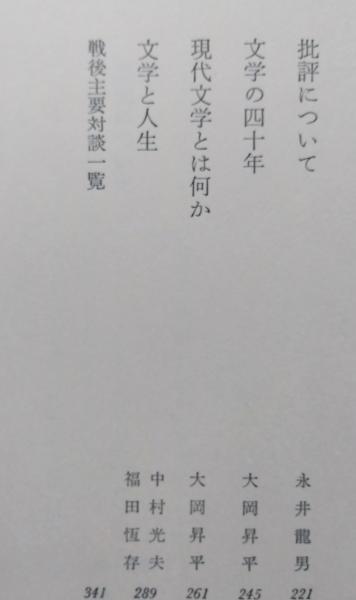 批評について 永井龍男 221
文学の四十年 大岡昇平 245
現代文学とは何か 大岡昇平 261
文学と人生 中村光夫 福田恆存 289
戦後主要対談一覧 341